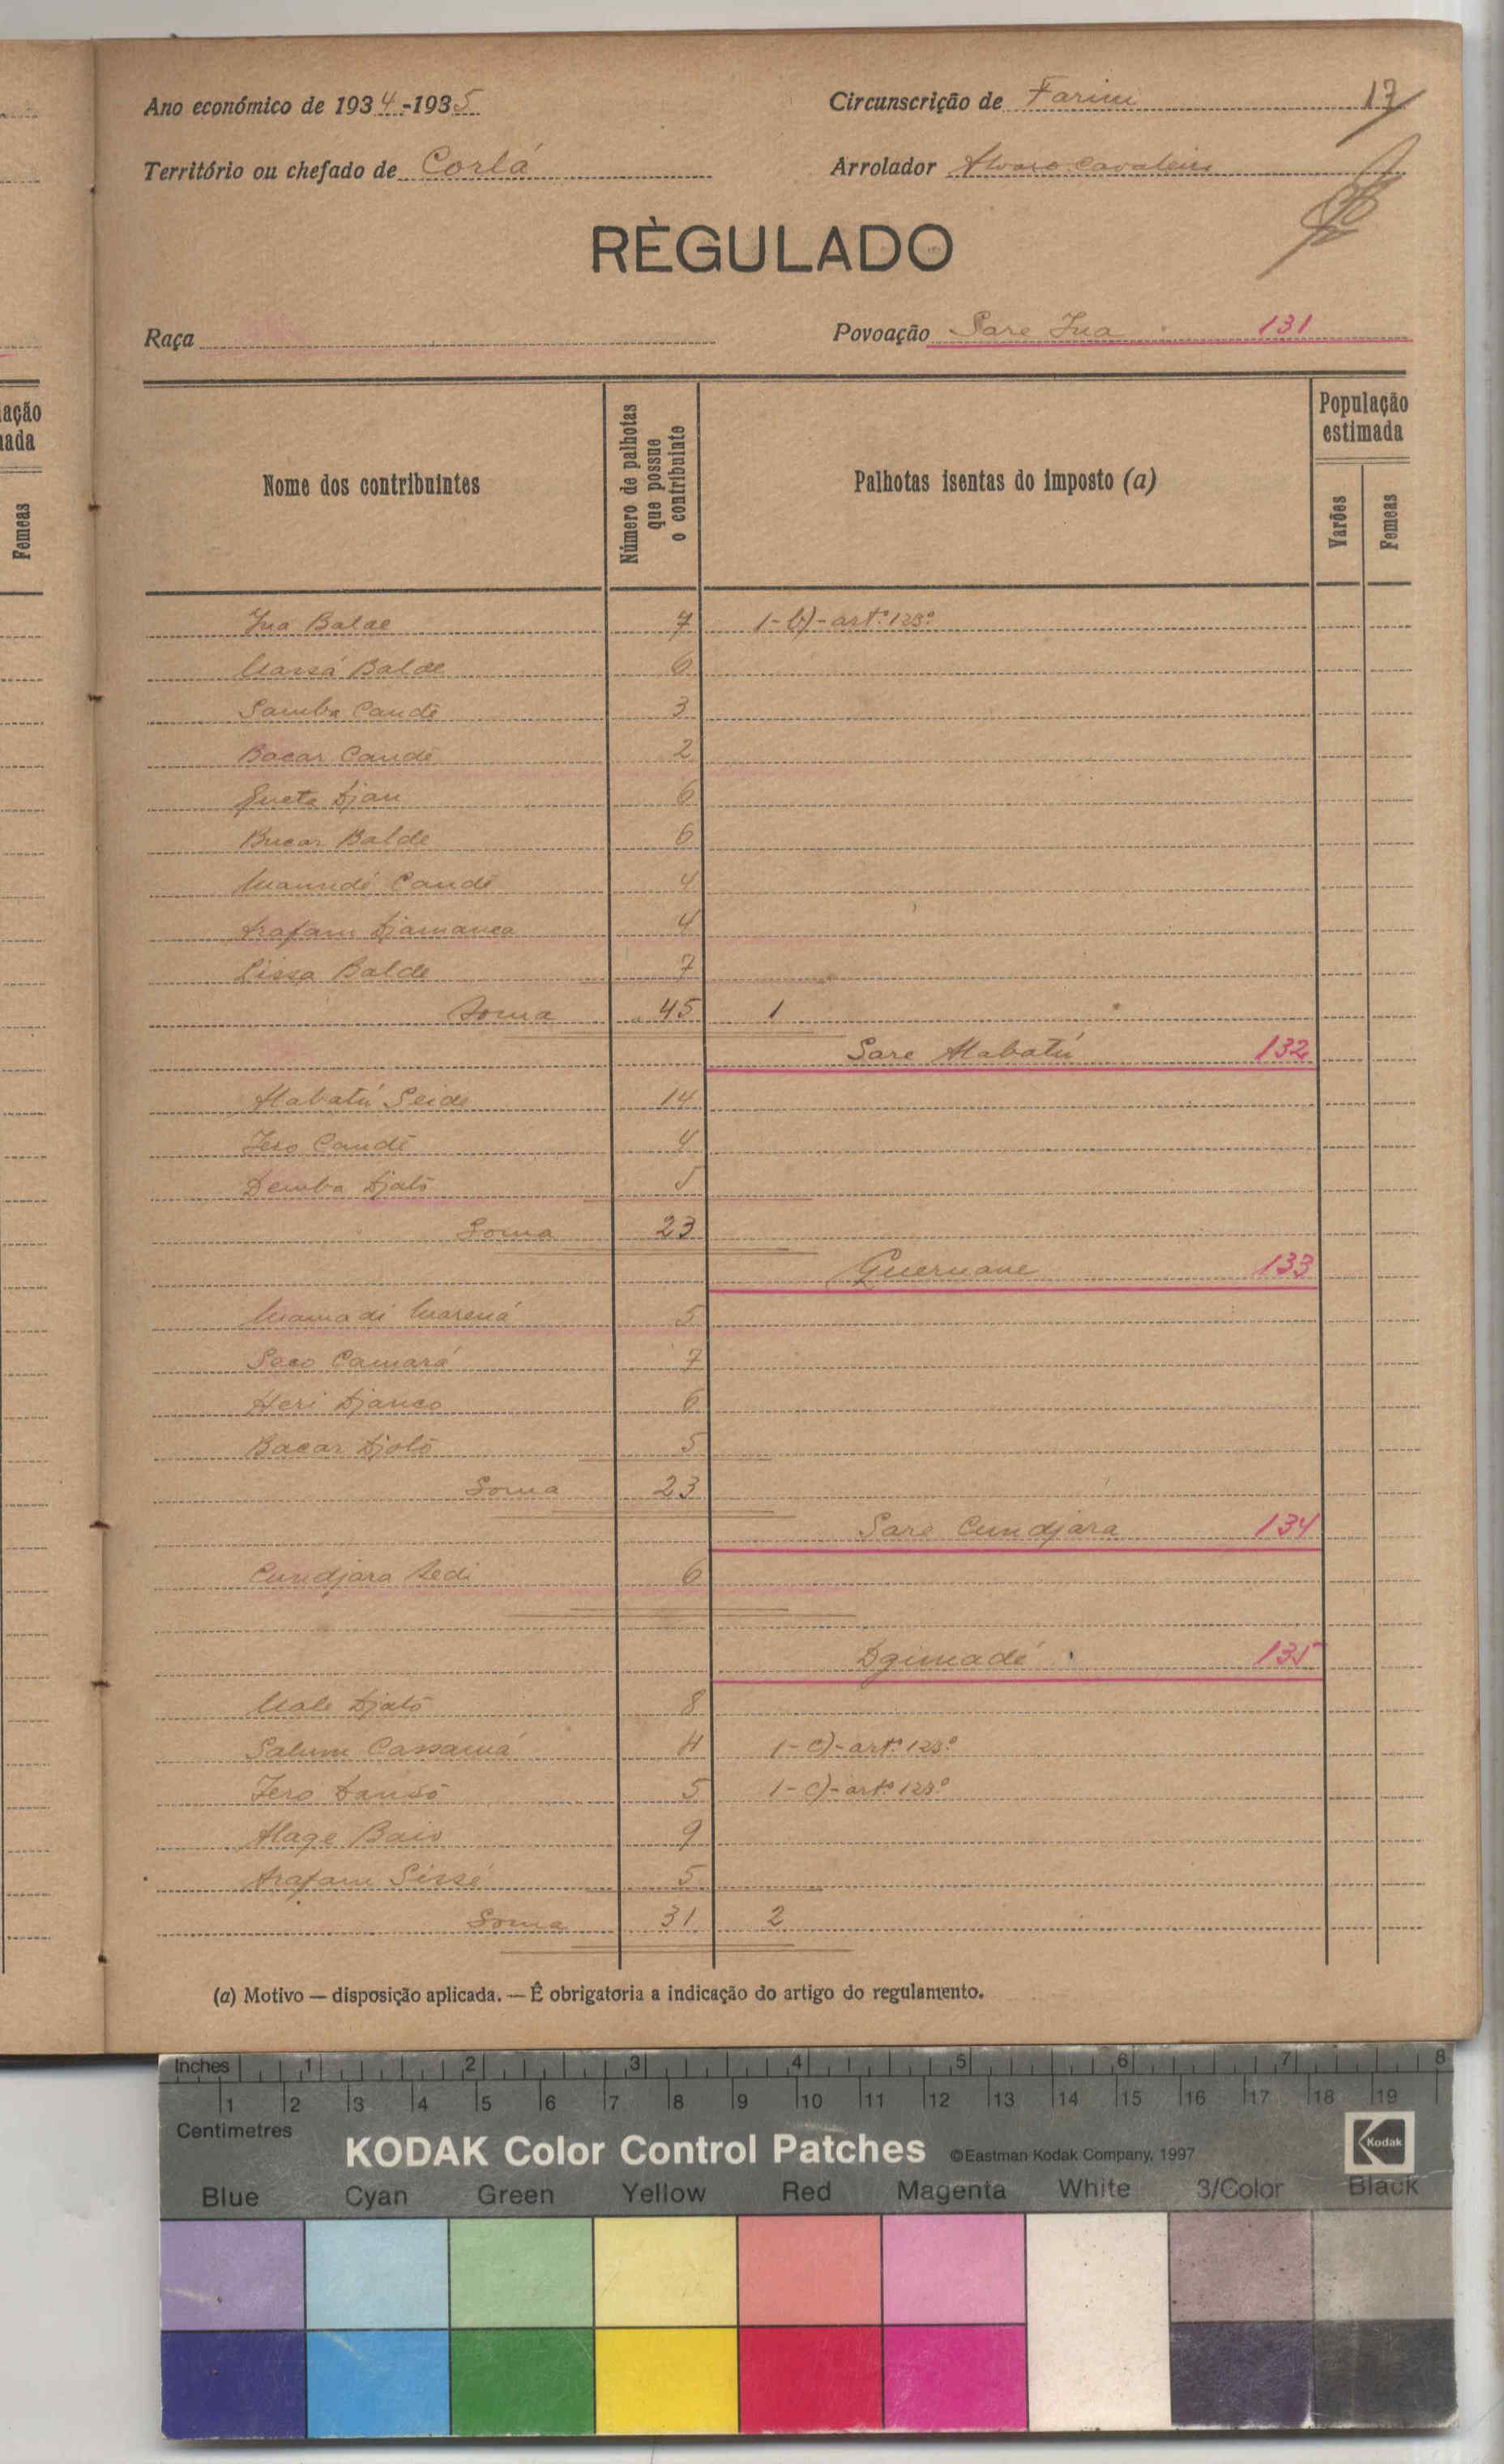 Ano económico de 1934-1935
Circunscrição de Farim 17
Território ou chefado de Corlá
Arrolador Alvaro Cavaleiro
RÈGULADO
Raça
Povoação Sare Jua 131
ação
ada
Femeas
Nome dos contribuintes
Número de palhotas que possue o contribuinte
Palhotas isentas do imposto (a)
População estimada
Varões
Femeas
Jua Balde 7 1-b)-artº.123º
Balde 6
Samba Candé 3
Bacar Candé 2
Queta Djau 6
Bucar Balde 6
Candé 4
Arafam Djamanca 4
Lissa Balde 7
Soma 45 1
Sare Mabatú 132
Mabatú Seide 14
Jero Candé 4
Demba Djaló 5
Soma 23
Guernane 133
Mamadi Marená 5
Saco Camará 7
Heri Djanco 6
Bacar Djaló 5
Soma 23
Sare Cundjara 134
Cundjara Sedi 6
Dgimadé 135
Male Djaló 8
Salum Cassamá 4 1-c)-artº.123º
Jero Dansó 5 1-c)-artº.123º
Alage Baio 9
Arafam Sissé 5
Soma 31 2
(a) Motivo — disposição aplicada. — Ê obrigatoria a indicação do artigo do regulamento.
Inches 1 2 3 4 5 6 7 8
1 2 3 4 5 6 7 8 9 10 11 12 13 14 15 16 17 18 19
Centimetres
KODAK Color Control Patches ©Eastman Kodak Company, 1997 Kodak
Blue Cyan Green Yellow Red Magenta White 3/Color Black